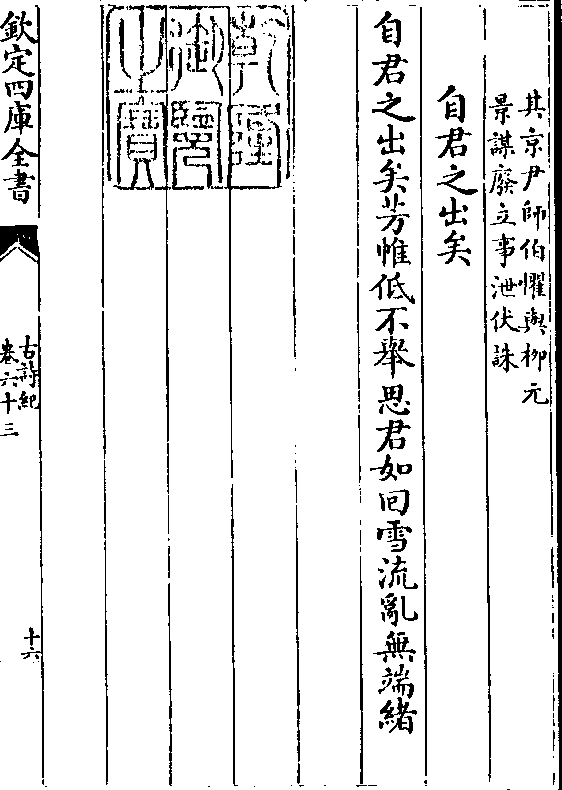 其京尹師伯懼與栁元
景謀廢立事泄伏誅
自君之出矣
自君之出矣芳帷低不舉思君如回雪流亂無端緒
乾隆
御覽
之寶
欽定四庫全書
古詩紀
卷六十三
十六